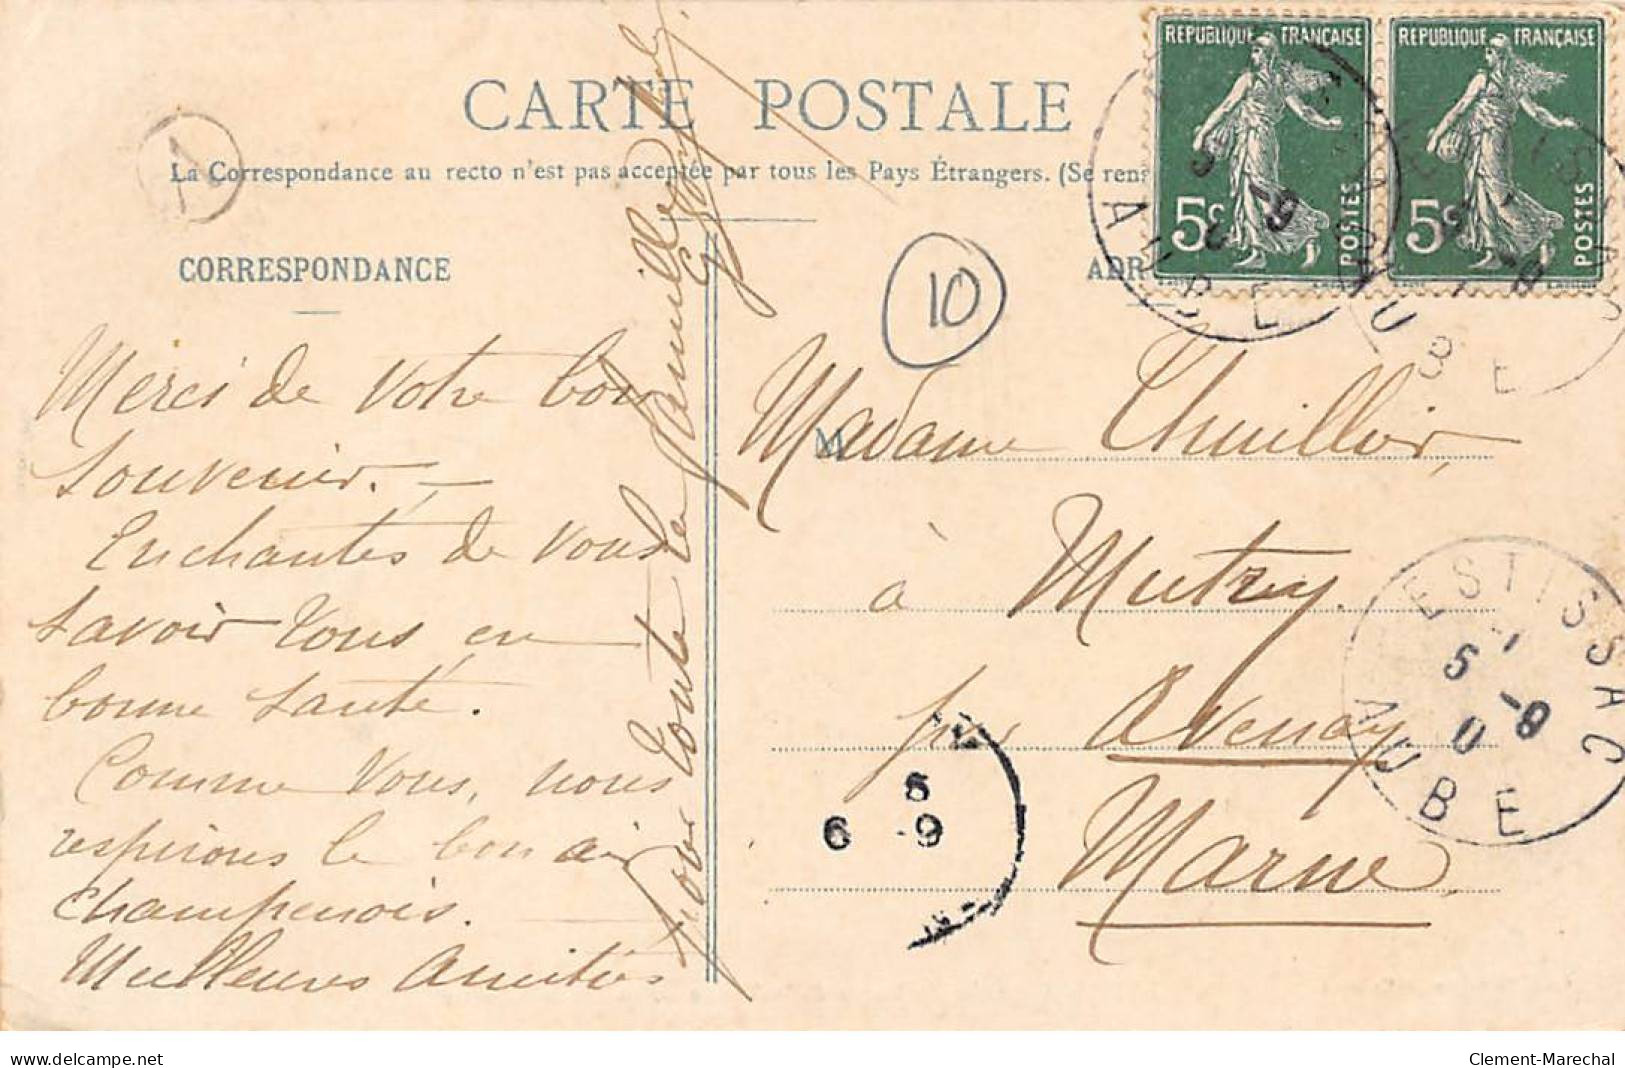 CARTE POSTALE
La Correspondance au recto n'est pas acceptée par tous les Pays Étrangers. (Se rens
CORRESPONDANCE
ADR
Merci de votre bon
souvenir. —
Enchantés de vous
savoir tous en
bonne santé.
Comme vous, nous
respirons le bon air
champenois.
Meilleures amitiés
pour toute la famille
10
RÉPUBLIQUE FRANÇAISE
5c
POSTES
RÉPUBLIQUE FRANÇAISE
5c
POSTES
M
Madame Thuillier,
à Mutry.
par Avenay
Marne
ESTISSAC
AUBE
5
6 -9
A
www.delcampe.net
Clement-Marechal